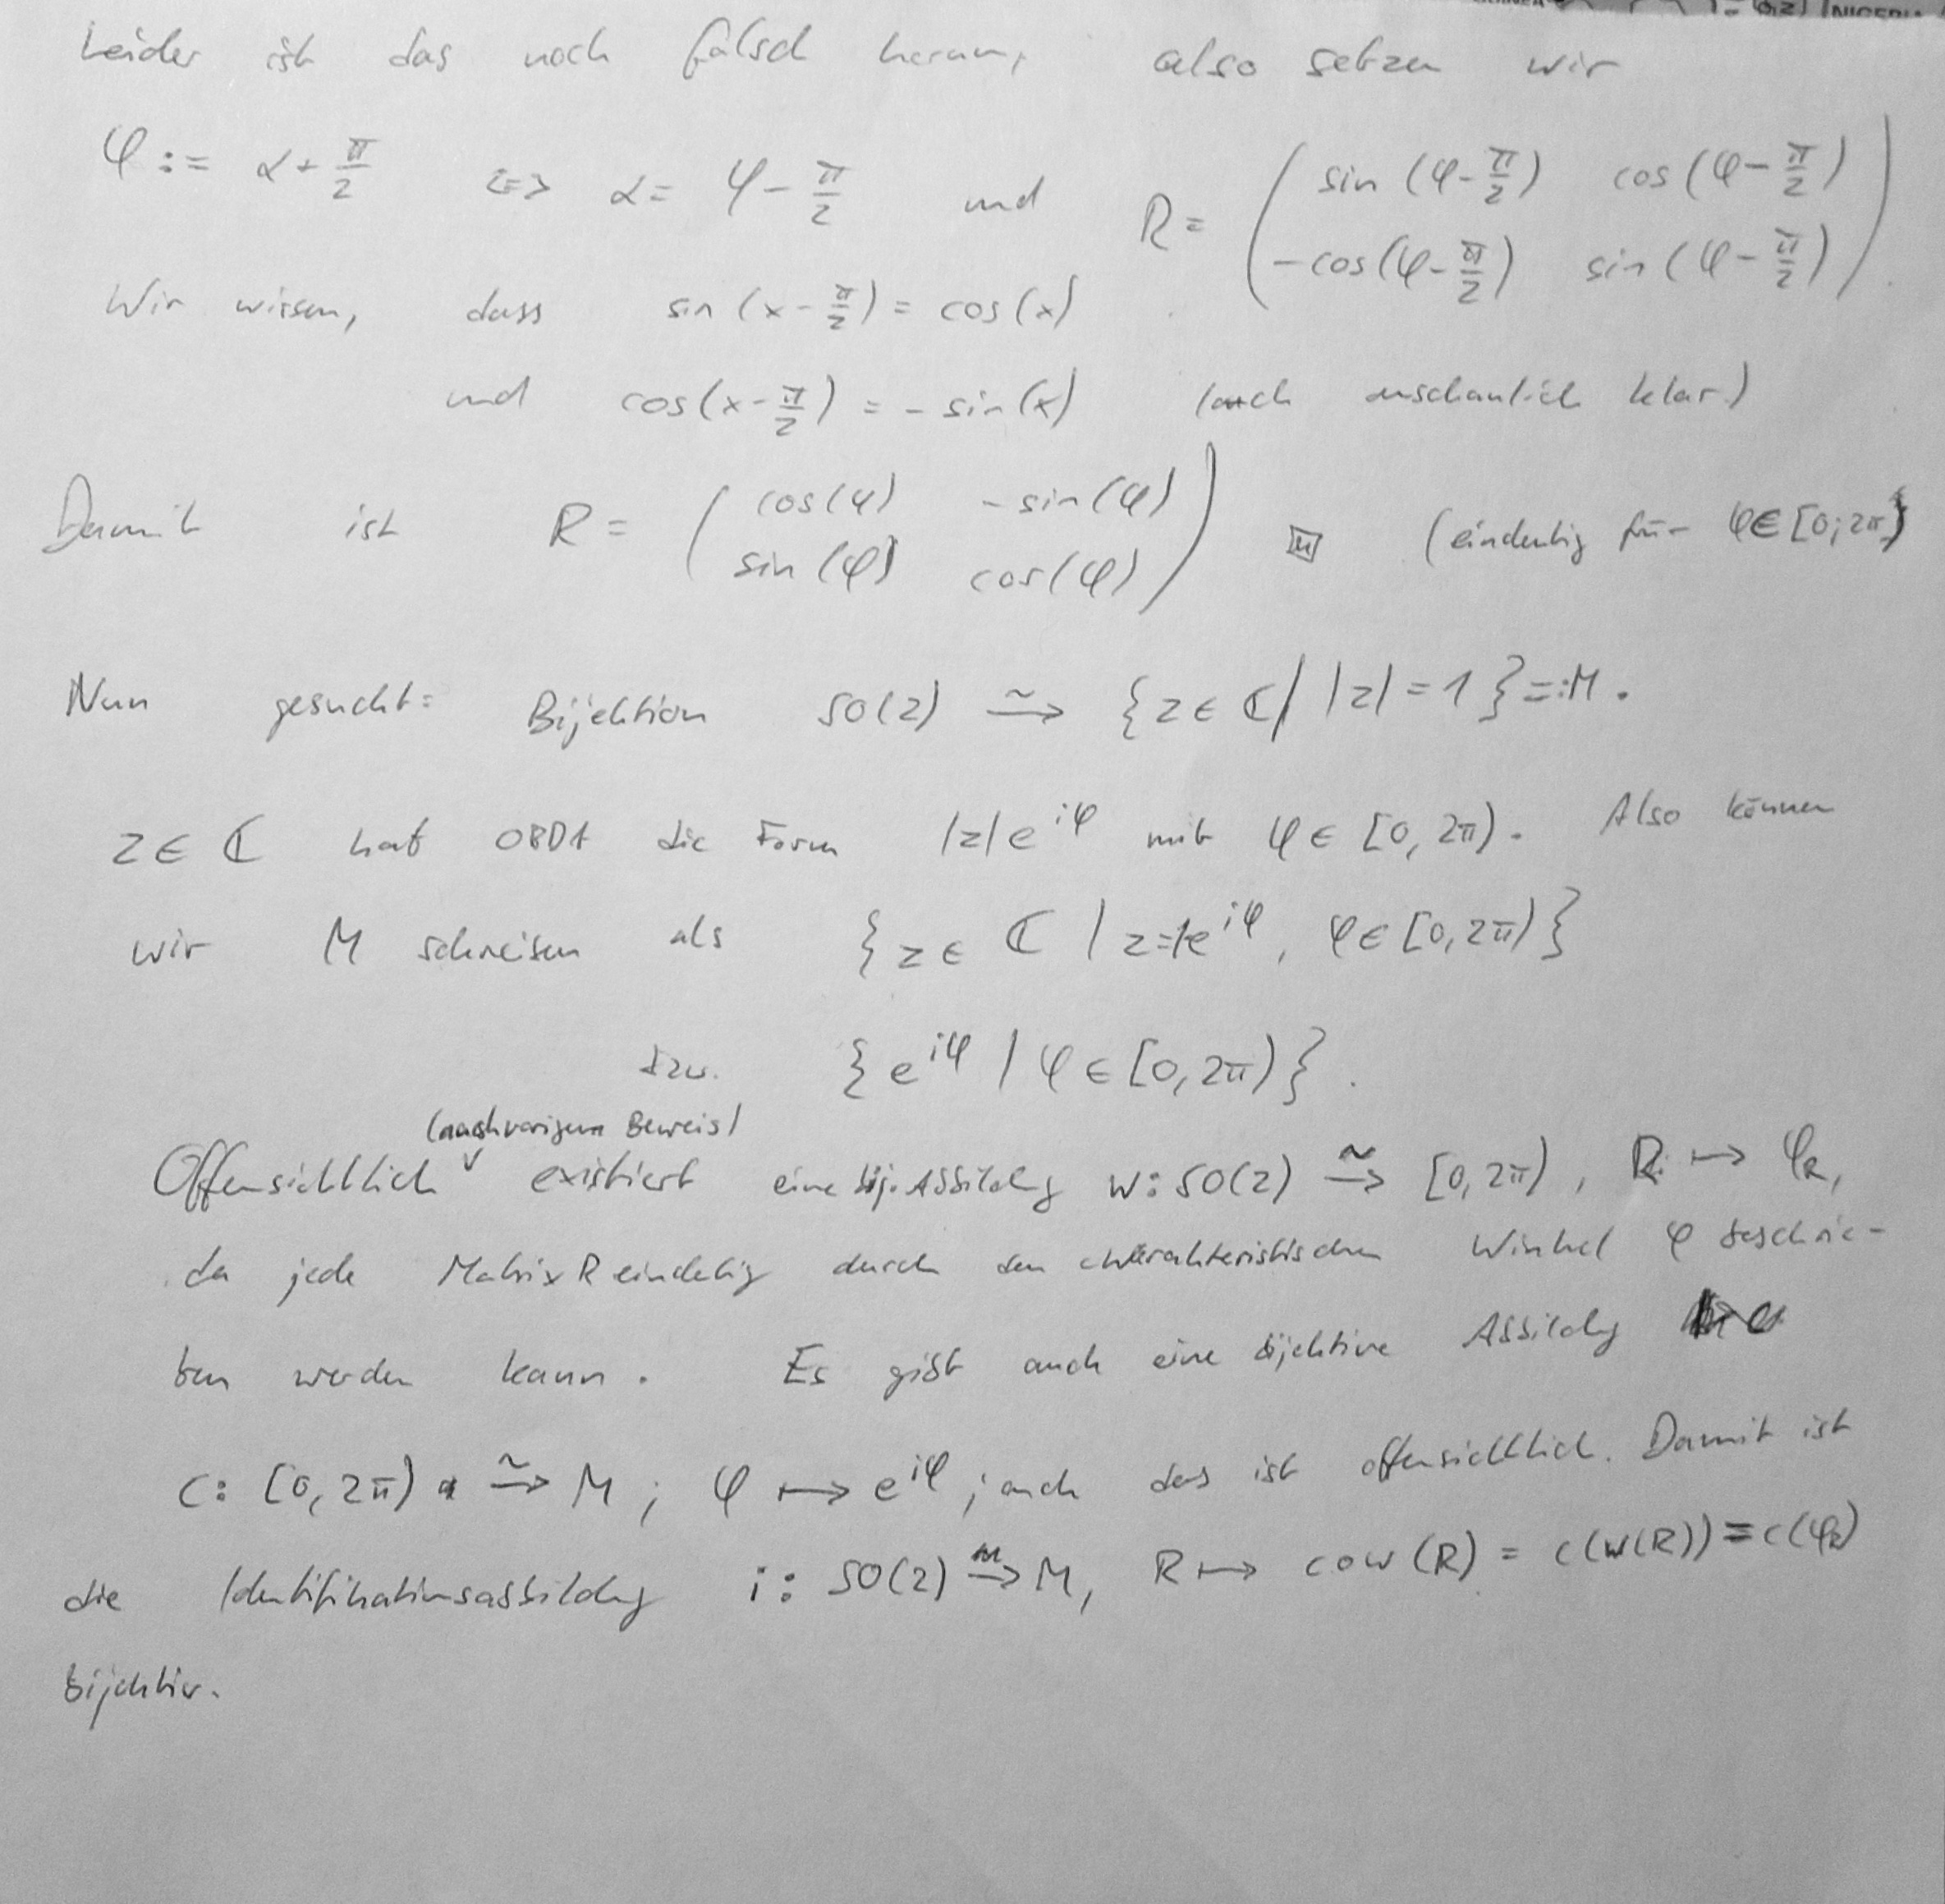 Leider ist das noch falsch herum, also setzen wir
φ := α + π/2 <=> α = φ - π/2 und R = ( sin(φ-π/2) cos(φ-π/2) ; -cos(φ-π/2) sin(φ-π/2) )
Wir wissen, dass sin(x-π/2) = cos(x)
und cos(x-π/2) = -sin(x) (auch anschaulich klar.)
Damit ist R = ( cos(φ) -sin(φ) ; sin(φ) cos(φ) ) (eindeutig für φ∈[0;2π)
Nun gesucht: Bijektion SO(2) ⥲ {z∈ℂ| |z|=1}=:M.
z∈ℂ hat OBDA die Form |z|e^{iφ} mit φ∈[0,2π). Also können
wir M schreiben als {z∈ℂ | z=1e^{iφ}, φ∈[0,2π)}
bzw. {e^{iφ} | φ∈[0,2π)}.
(nach vorigem Beweis)
Offensichtlich existiert eine bij. Abbildg w: SO(2) ⥲ [0,2π), R ↦ φ_R,
da jede Matrix R eindetig durch den charakteristischen Winkel φ beschrie-
ben werden kann. Es gibt auch eine bijektive Abbildg
c: [0,2π) ⥲ M; φ ↦ e^{iφ}; auch das ist offensichtlich. Damit ist
die Identifikationsabbildg i: SO(2) ⥲ M, R ↦ c∘w(R) = c(w(R)) = c(φ_R)
bijektiv.